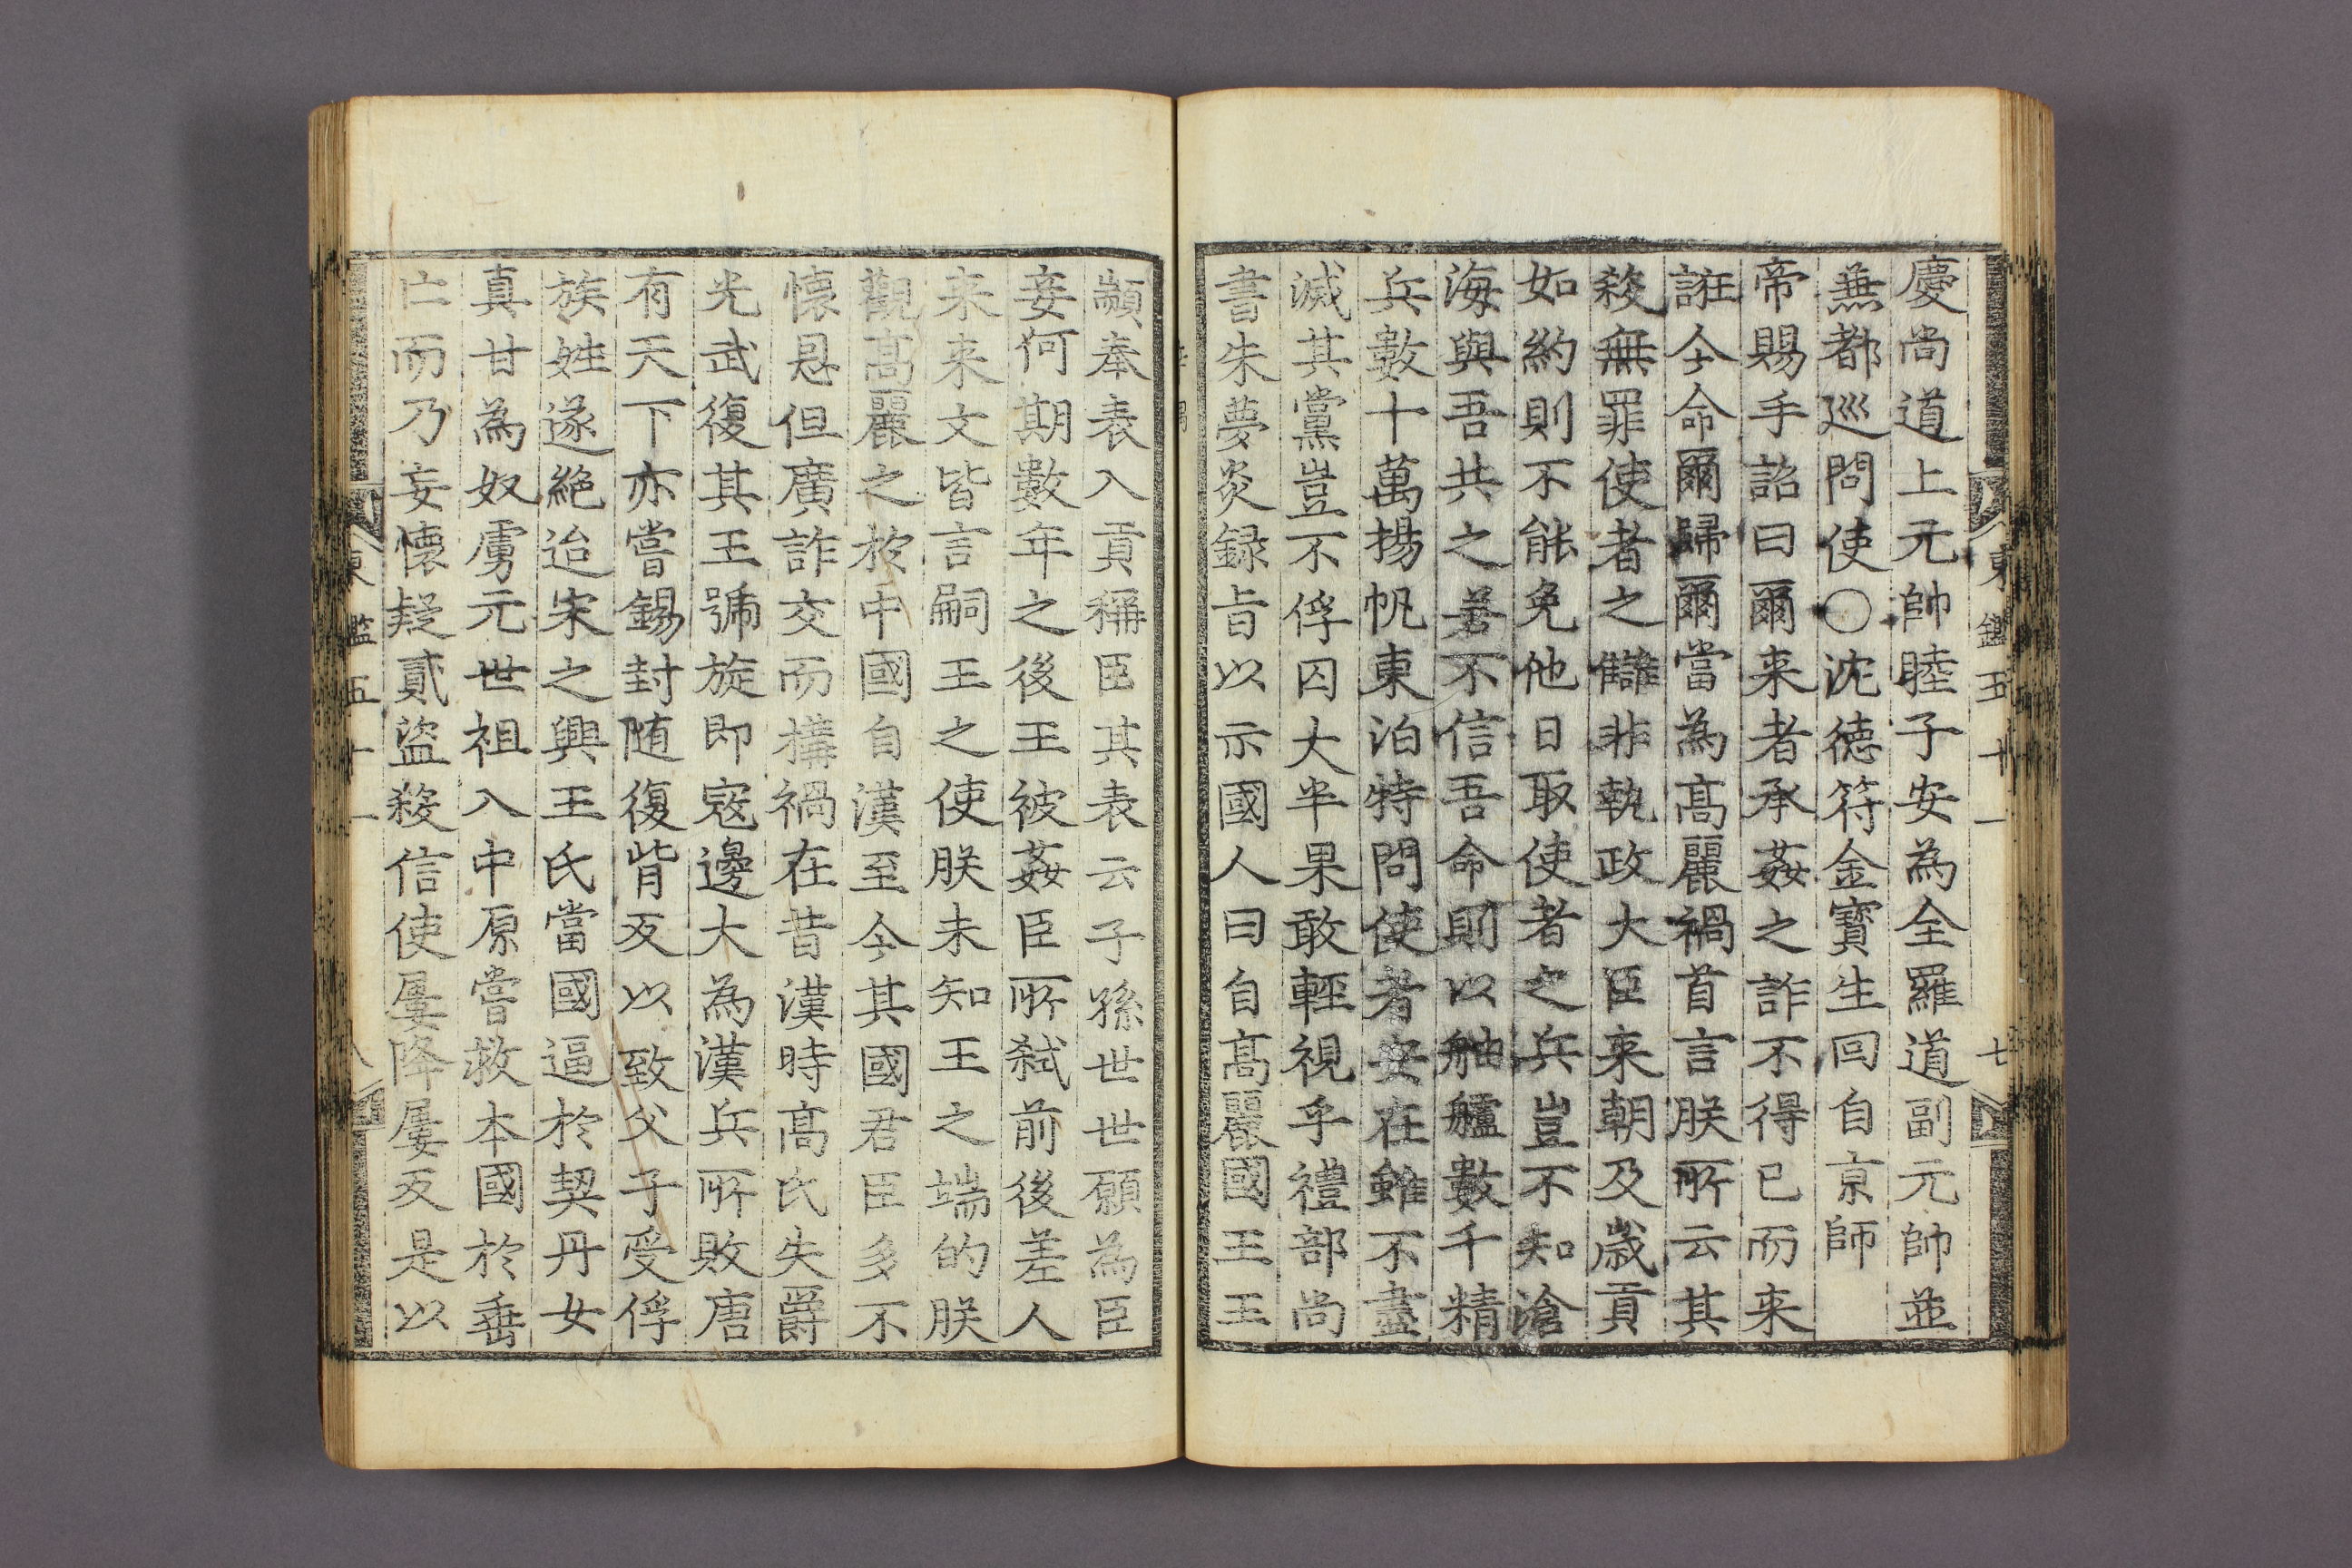 慶尚道上元帥睦子安為全羅道副元帥並
無都巡問使○沈徳符金寶生回自京師
帝賜手詔曰爾来者承姦之詐不得已而来
誑今命爾歸爾當為髙麗禍首言朕所云其
殺無罪使者之讎非執政大臣来朝及歲貢
如約則不能免他日取使者之兵豈不知滄
海與吾共之若不信吾命則以舳艫數千精
兵數十萬揚帆東泊特問使者安在雖不盡
滅其黨豈不俘囚大半果敢輕視乎禮部尚
書朱夢炎録㫖以示國人曰自髙麗國王王
顓奉表入貢稱臣其表云子孫世世願為臣
妾何期數年之後王被姦臣所弑前後差人
来来文皆言嗣王之使朕未知王之端的朕
觀髙麗之於中國自漢至今其國君臣多不
懐恩但廣詐交而構禍在昔漢時髙氏失爵
光武復其王號旋即寇邊大為漢兵所敗唐
有天下亦嘗錫封随復背叛以致父子受俘
族姓遂絶迨宋之興王氏當國逼於契丹女
真甘為奴虜元世祖入中原嘗救本國於垂
亡而乃妄懐疑貳盜殺信使屢降屢叛是以
東鑑五十一 七
東鑑五十一 八